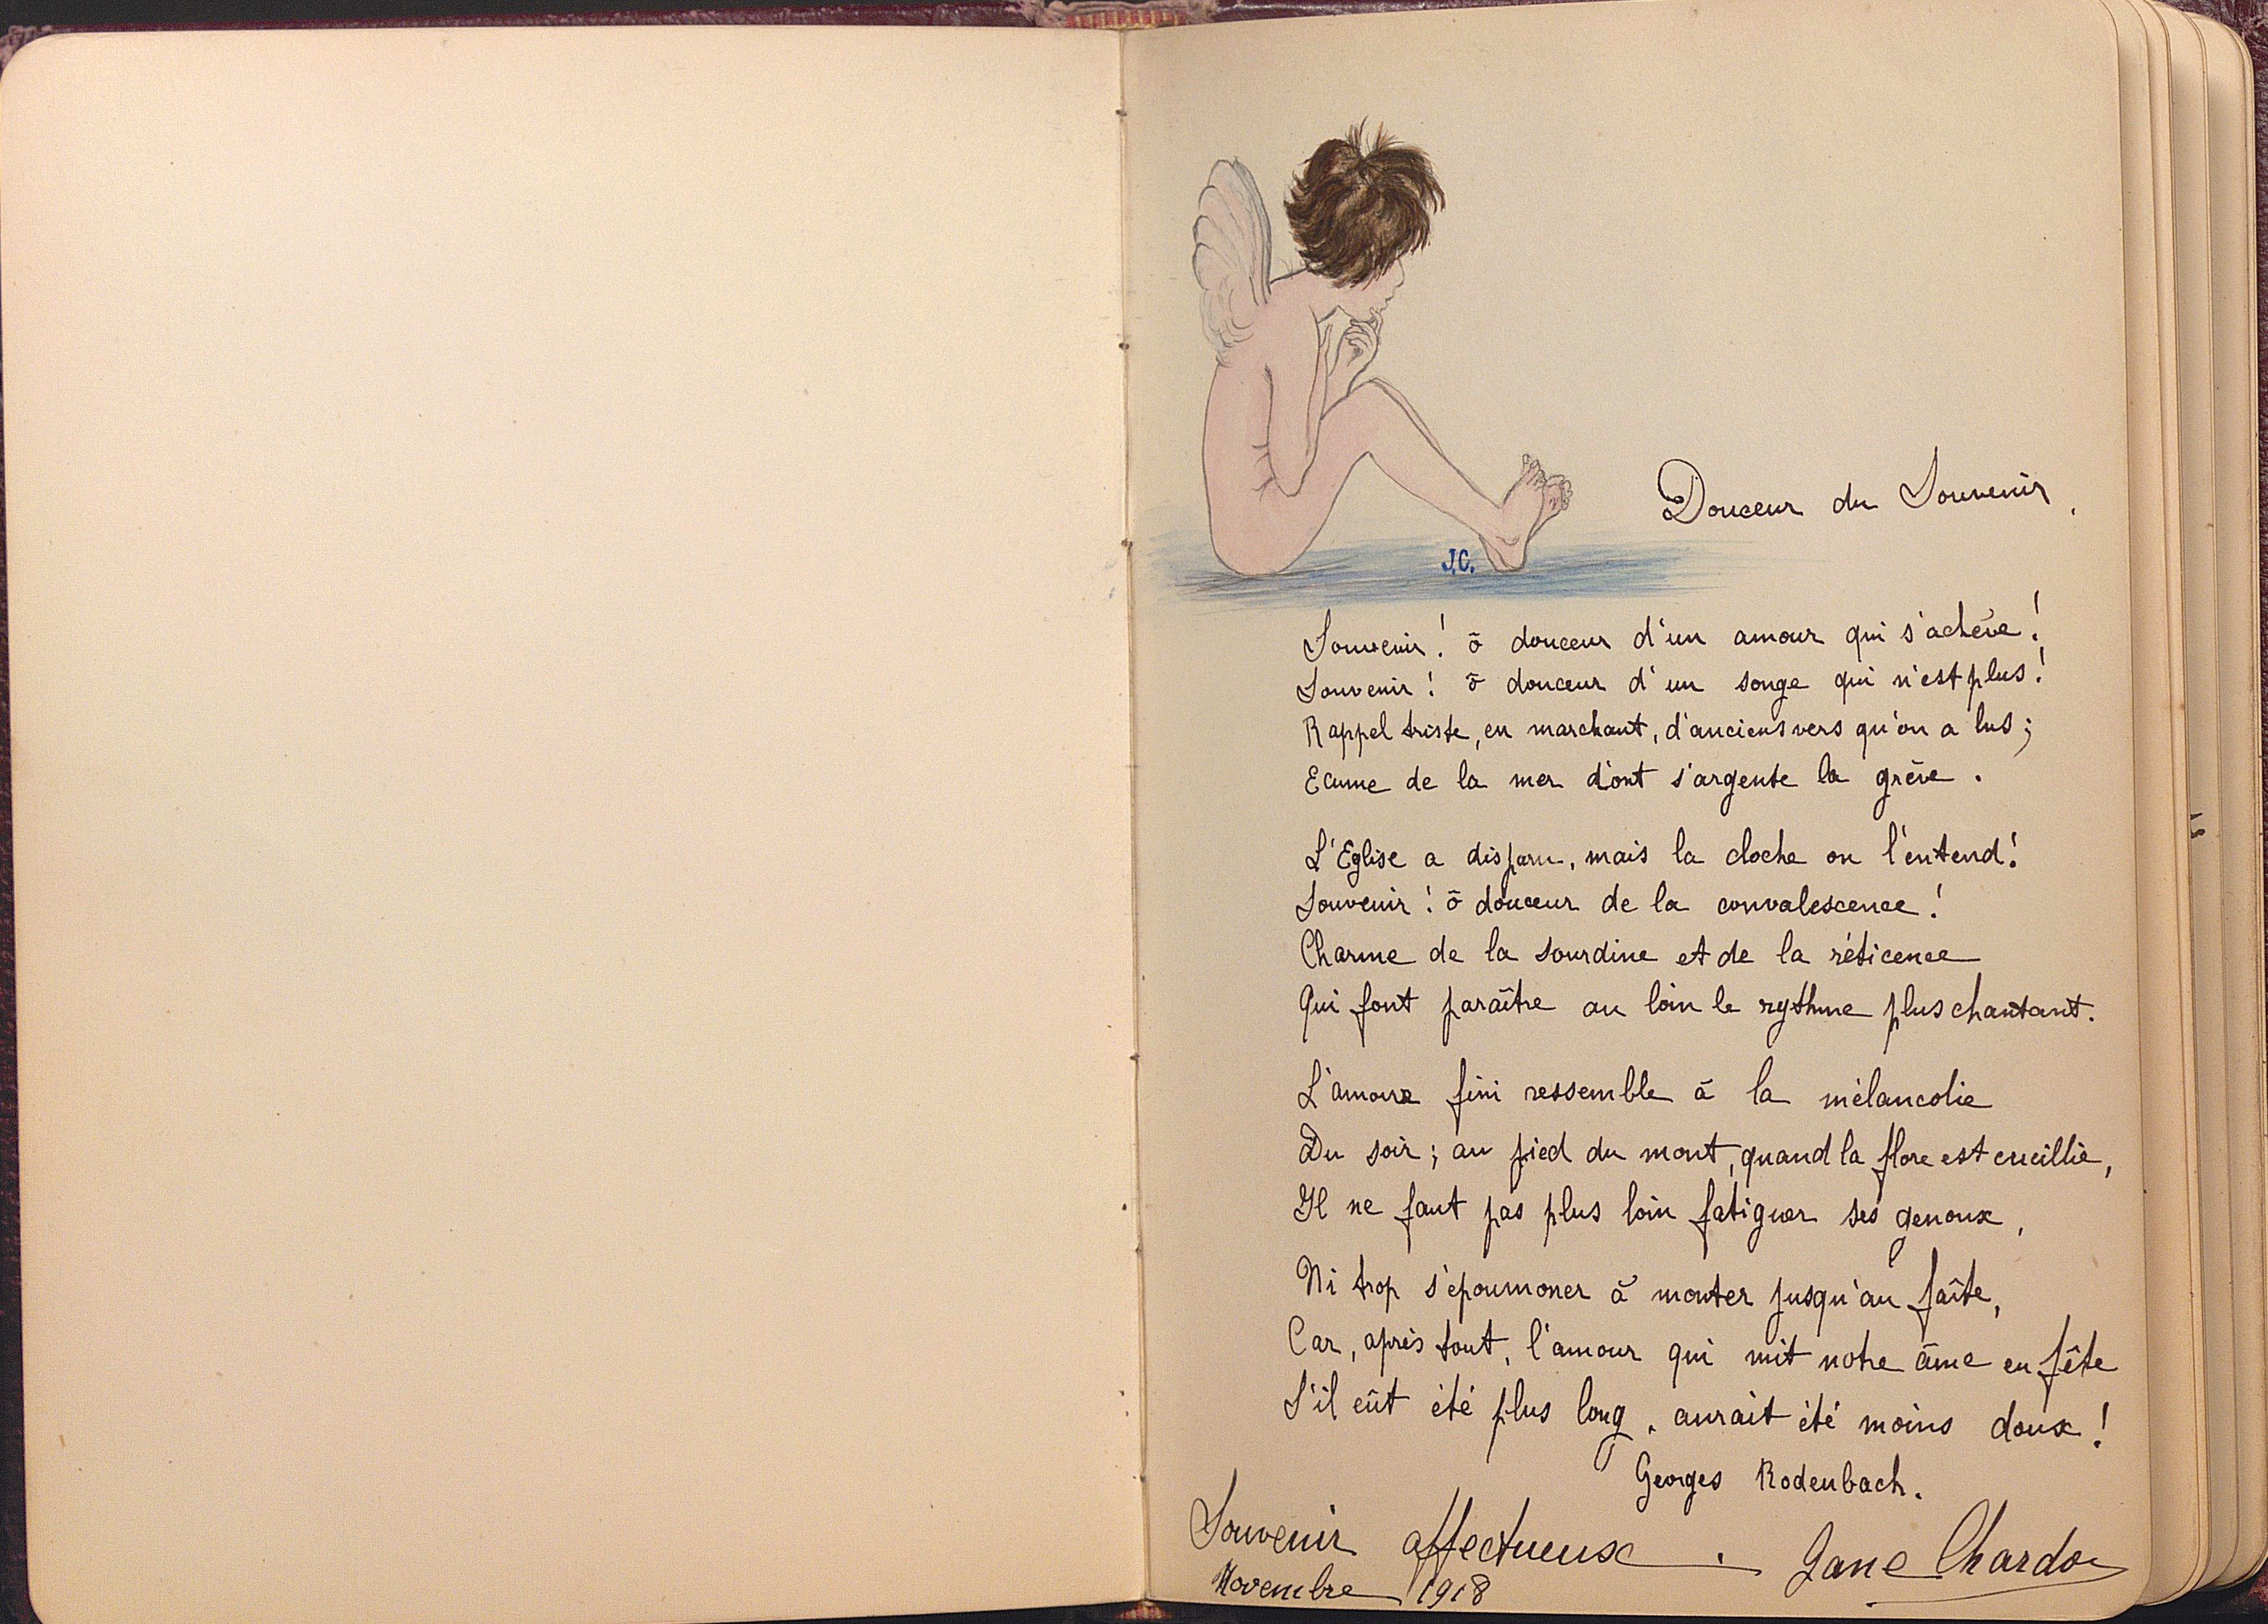 J.C.
Douceur du Souvenir.
Souvenir! ô douceur d'un amour qui s'achève!
Souvenir! ô douceur d'un songe qui n'est plus!
Rappel triste, en marchant, d'anciens vers qu'on a lus;
Ecume de la mer d'ont s'argente la grève.
L'Eglise a disparu, mais la cloche on l'entend!
Souvenir! ô douceur de la convalescence!
Charme de la sourdine et de la réticence
Qui font paraître au loin le rythme plus chantant.
L'amour fini ressemble à la mélancolie
Du soir; au pied du mont, quand la flore est cueillie,
Il ne faut pas plus loin fatiguer ses genoux,
Ni trop s'époumoner à monter jusqu'au faîte,
Car, après tout, l'amour qui mit notre âme en fête
S'il eût été plus long, aurait été moins doux!
Georges Rodenbach.
Souvenir affectueux. Jane Chardon
Novembre 1918